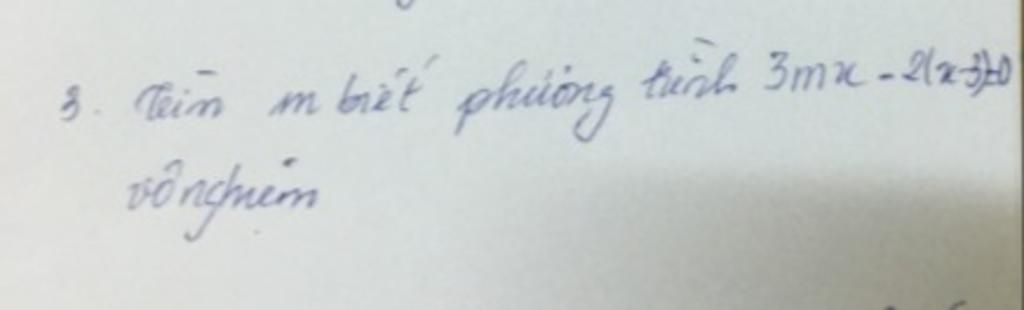 3. Tìm m biết phương trình 3mx - 2(x-3)=0
vô nghiệm